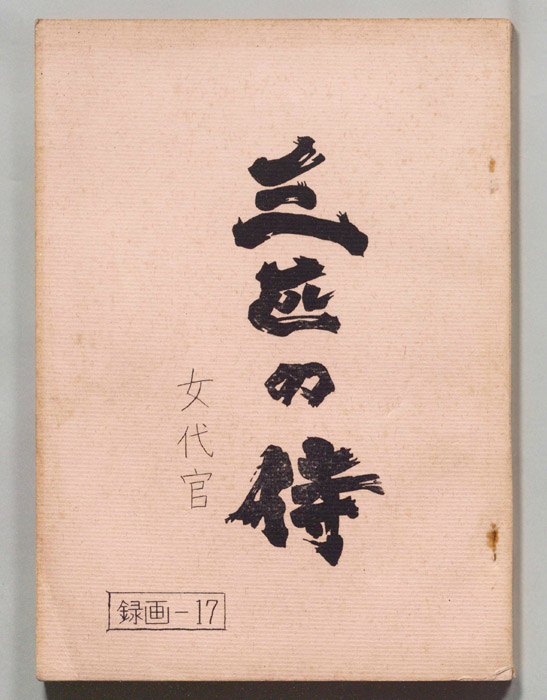 三匹の侍
女代官
録画-17